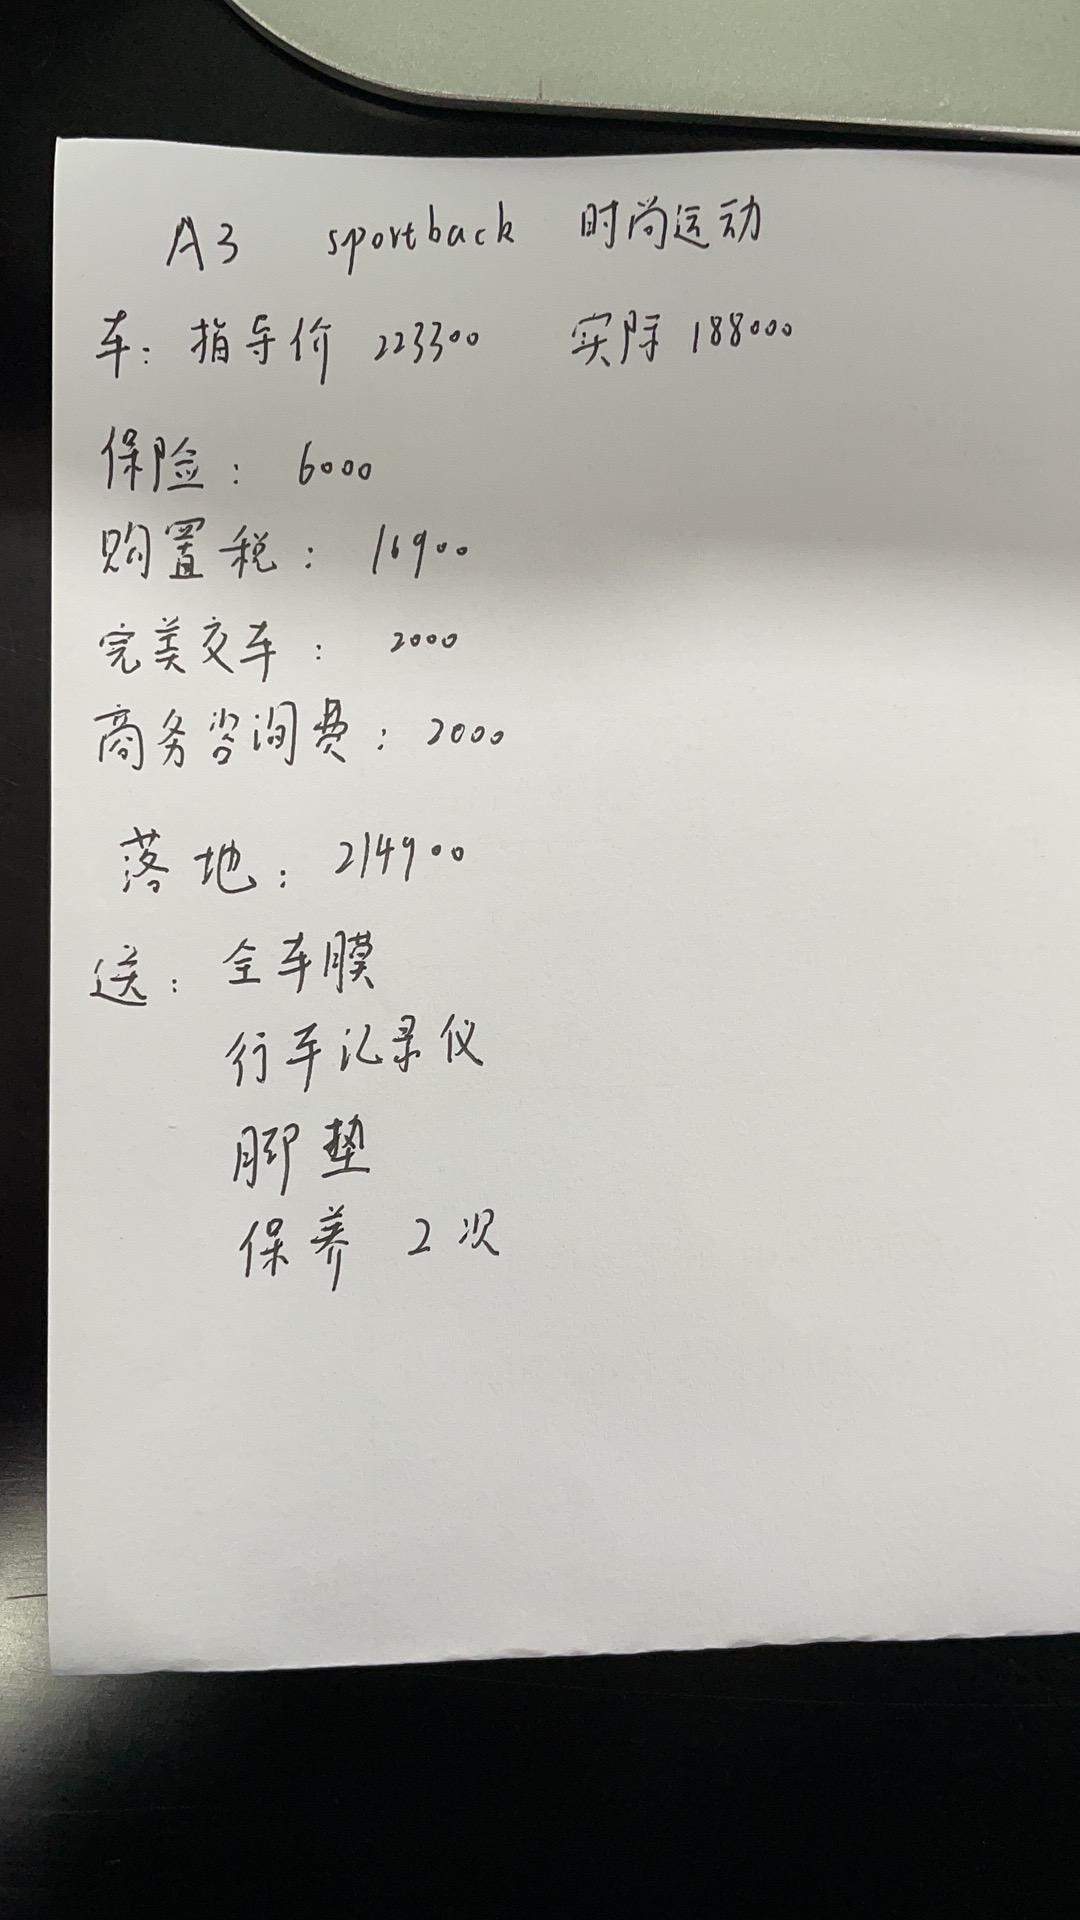 A3 sportback 时尚运动
车: 指导价 223300 实际 188000
保险: 6000
购置税: 16900
完美交车: 2000
商务咨询费: 2000
落地: 214900
送: 全车膜
行车记录仪
脚垫
保养 2次